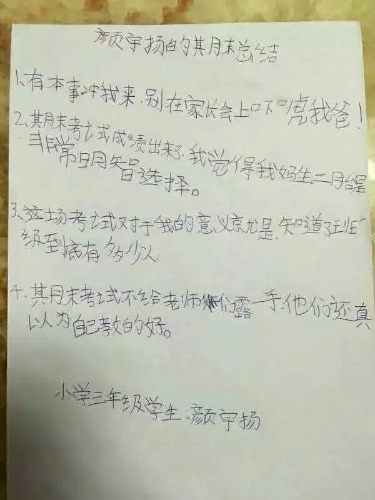 颜宇扬的其月末总结
1、有本事冲我来,别在家长会上吓唬我爸!
2、其月末考试成绩出来了,我觉得我妈生二胎是
非常明智选择。
3、这场考试对于我的意义京尤是,知道了班
级到底有多少人
4、其月末考试不给老师们露一手,他们还真
以为自己教的好。
小学三年级学生:颜宇扬